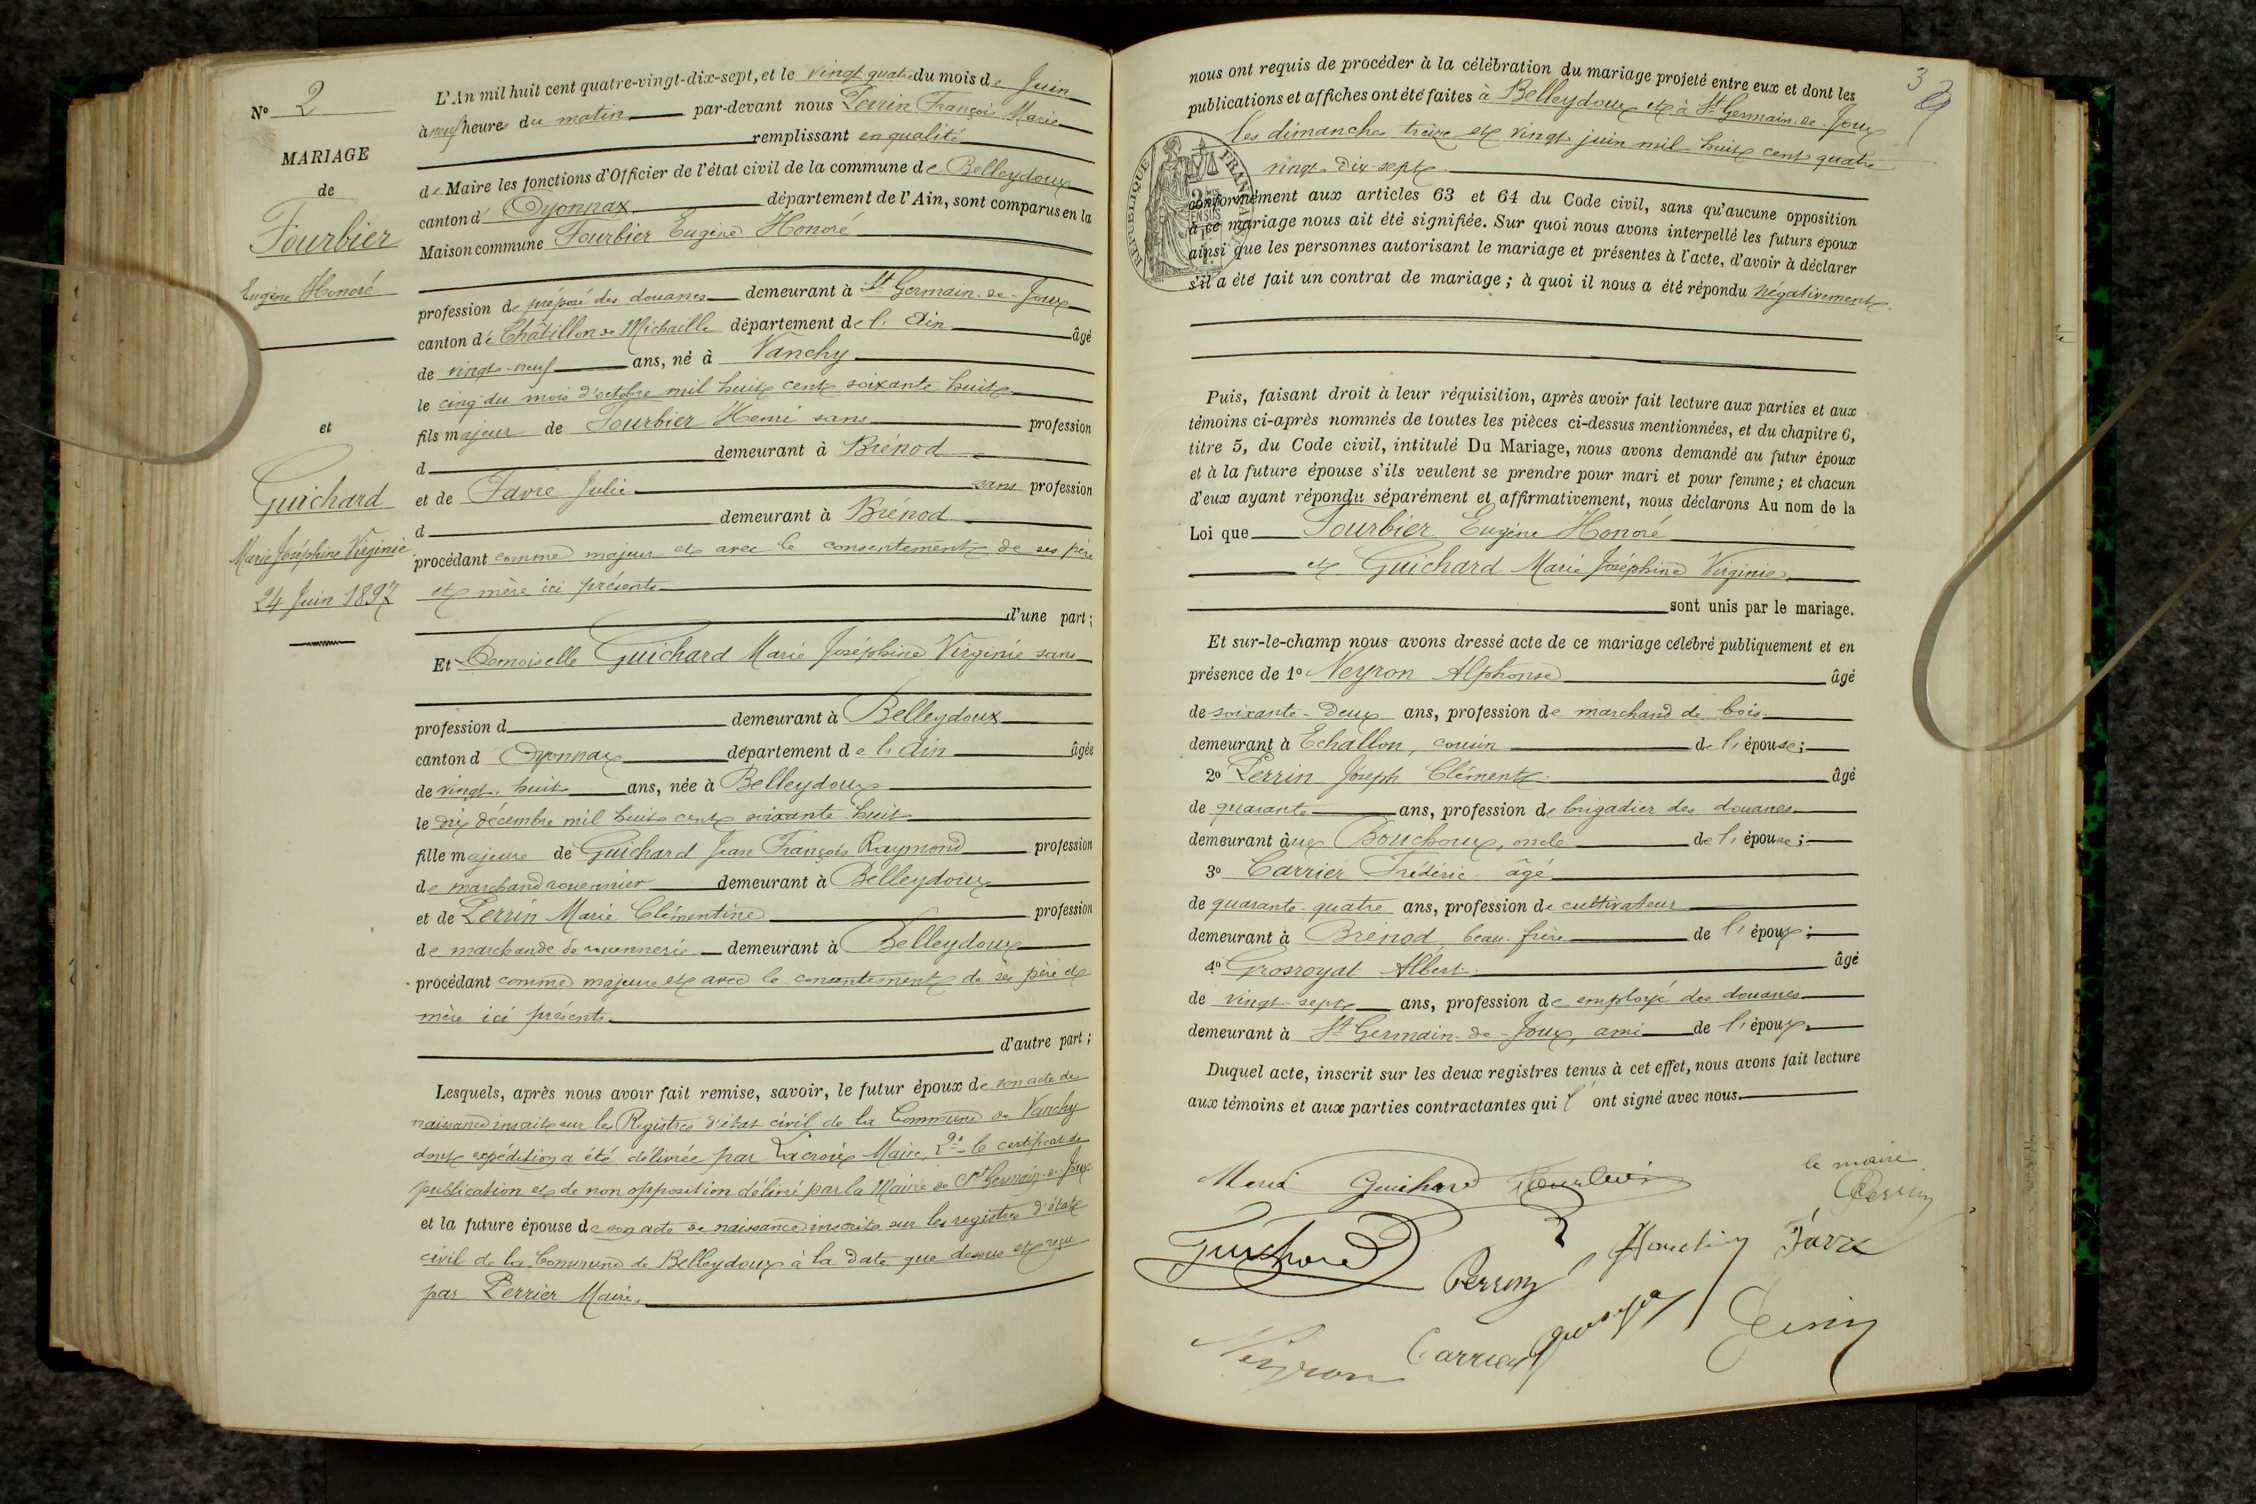 Nº 2
MARIAGE
de
Fourbier
Eugène Honoré
et
Guichard
Marie Joséphine Virginie
24 Juin 1897
L'An mil huit cent quatre-vingt-dix-sept, et le vingt quatre du mois de Juin
à neuf heures du matin par-devant nous Perrin François Marie
remplissant en qualité
de Maire les fonctions d'Officier de l'état civil de la commune de Belleydoux
canton d' Oyonnax département de l'Ain, sont comparus en la
Maison commune Fourbier Eugène Honoré
profession de préposé des douanes demeurant à St Germain-de-Joux
canton de Châtillon de Michaille département de l'Ain âgé
de vingt-neuf ans, né à Vanchy
le cinq du mois d'octobre mil huit cent soixante huit
fils majeur de Fourbier Henri sans profession
d demeurant à Brénod
et de Favre Julie sans profession
d demeurant à Brénod
procédant comme majeur et avec le consentement de ses père
et mère ici présents
d'une part;
Et Demoiselle Guichard Marie Joséphine Virginie sans
profession d demeurant à Belleydoux
canton d Oyonnax département de l'Ain âgée
de vingt-huit ans, née à Belleydoux
le dix décembre mil huit cent soixante-huit
fille majeure de Guichard Jean François Raymond profession
de marchand rouennier demeurant à Belleydoux
et de Perrin Marie Clémentine profession
de marchande de rouennerie demeurant à Belleydoux
procédant comme majeure et avec le consentement de ses père et
mère ici présents
d'autre part;
Lesquels, après nous avoir fait remise, savoir, le futur époux de son acte de
naissance inscrit sur les Registres d'état civil de la Commune de Vanchy
dont expédition a été délivrée par Lacroix Maire, 2º le certificat de
publication et de non opposition délivré par la Mairie de St Germain-de-Joux
et la future épouse de son acte de naissance inscrite sur les registres d'état
civil de la Commune de Belleydoux à la date que dessus et reçu
par Perrier Maire.
3
nous ont requis de procéder à la célébration du mariage projeté entre eux et dont les
publications et affiches ont été faites à Belleydoux et à St Germain-de-Joux
les dimanches treize et vingt juin mil huit cent quatre
vingt-dix-sept
RÉPUBLIQUE FRANÇAISE
conformément aux articles 63 et 64 du Code civil, sans qu'aucune opposition
à ce mariage nous ait été signifiée. Sur quoi nous avons interpellé les futurs époux
ainsi que les personnes autorisant le mariage et présentes à l'acte, d'avoir à déclarer
s'il a été fait un contrat de mariage; à quoi il nous a été répondu négativement.
Puis, faisant droit à leur réquisition, après avoir fait lecture aux parties et aux
témoins ci-après nommés de toutes les pièces ci-dessus mentionnées, et du chapitre 6,
titre 5, du Code civil, intitulé Du Mariage, nous avons demandé au futur époux
et à la future épouse s'ils veulent se prendre pour mari et pour femme; et chacun
d'eux ayant répondu séparément et affirmativement, nous déclarons Au nom de la
Loi que Fourbier Eugène Honoré
et Guichard Marie Joséphine Virginie
sont unis par le mariage.
Et sur-le-champ nous avons dressé acte de ce mariage célébré publiquement et en
présence de 1º Neyron Alphonse âgé
de soixante-deux ans, profession de marchand de bois
demeurant à Echallon, cousin de l'épouse;
2º Perrin Joseph Clément âgé
de quarante ans, profession de brigadier des douanes
demeurant aux Bouchoux, oncle de l'épouse;
3º Carrier Frédéric âgé
de quarante-quatre ans, profession de cultivateur
demeurant à Brénod, beau-frère de l'époux;
4º Grosroyat Albert âgé
de vingt-sept ans, profession de employé des douanes
demeurant à St Germain-de-Joux, ami de l'époux.
Duquel acte, inscrit sur les deux registres tenus à cet effet, nous avons fait lecture
aux témoins et aux parties contractantes qui l' ont signé avec nous.
Marie Guichard Fourbier
le maire
Perrin
Guichard Perrin Favre
Neyron Carrier